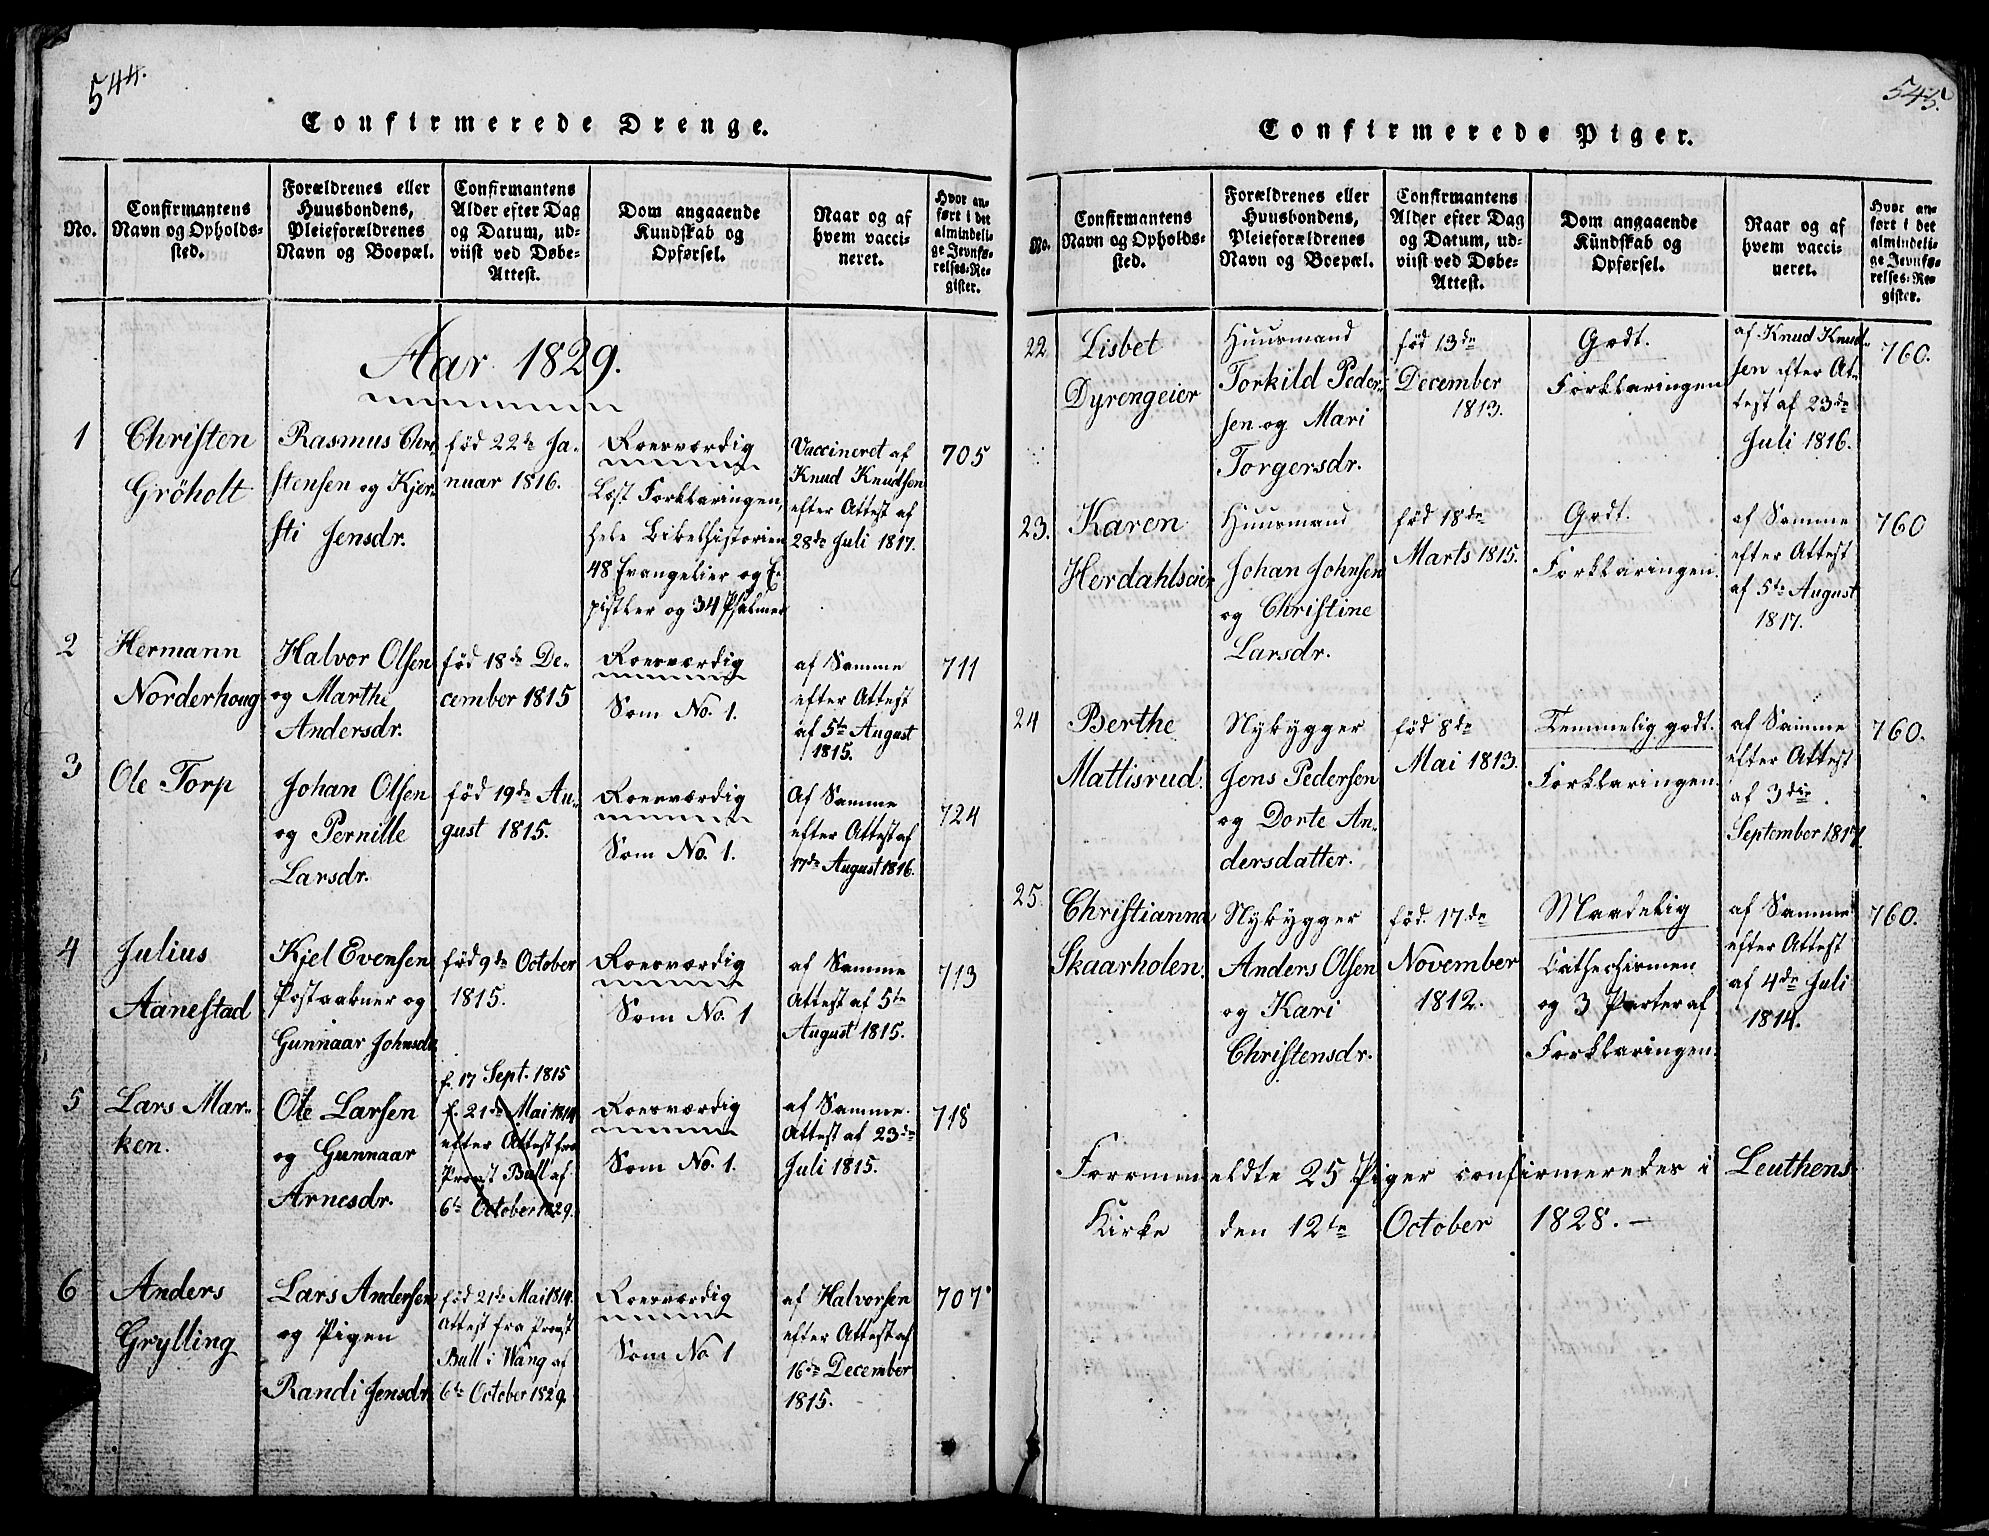 544.
Confirmerede Drenge.
No.
Confirmantens
Navn og Opholds-
sted.
Forældrenes eller
Huusbondens,
Pleieforældrenes
Navn og Boepæl.
Confirmantens
Alder efter Dag
og Datum, ud-
viist ved Døbe-
Attest.
Dom angaaende
Kundskab og
Opførsel.
Naar og af
hvem vacci-
neret.
Hvor an-
ført i det
almindeli-
ge Jevnfø-
relses-Re-
gister.
Aar 1829.
1
Christen
Gröholt
Rasmus Chri-
stensen og Kjer-
sti Jensdr.
fød 22de Ja-
nuar 1816.
Roesværdig
Læst Forklaringen,
hele Bibelhistorien
48 Evangelier og E-
pistler og 34 Psalmer
Vaccineret af
Knud Knudsen
efter Attest af
28de Juli 1817.
705
2
Hermann
Norderhoug
Halvor Olsen
og Marthe
Andersdr.
fød 18de De-
cember 1815
Roesværdig
Som No. 1.
af Samme
efter Attest
af 5te August
1815.
711
3
Ole Torp
Johan Olsen
og Pernille
Larsdr.
fød 19de Au-
gust 1815.
Roesværdig
Som No. 1.
Af Samme
efter Attest af
17de August 1816.
724
4
Julius
Aanestad
Kjel Evensen
Postaabner og
Gunnaar Johnsdr
fød 9de October
1815.
Roesværdig
Som No. 1
af Samme
Attest af 5te
August 1815.
713
5
Lars Mar-
ken.
Ole Larsen
og Gunnaar
Arnesdr.
f. 17 Sept. 1815
f. 21de Mai 1814
efter Attest fra
Provst Bull af
6te October 1829.
Roesværdig
Som No. 1.
af Samme.
Attest af 23de
Juli 1815.
718
6
Anders
Grylling
Lars Andersen
og Pigen
Randi Jensdr.
fød 21de Mai 1814.
Attest fra Provst
Bull i Wang af
6te October 1829.
Roesværdig
Som No 1
af Halvorsen
efter Attest af
16de December
1815.
707
545.
Confirmerede Piger.
No.
Confirmantens
Navn og Opholds-
sted.
Forældrenes eller
Huusbondens,
Pleieforældrenes
Navn og Boepæl.
Confirmantens
Alder efter Dag
og Datum, ud-
viist ved Døbe-
Attest.
Dom angaaende
Kundskab og
Opførsel.
Naar og af
hvem vacci-
neret.
Hvor an-
ført i det
almindeli-
ge Jevnfø-
relses-Re-
gister.
22
Lisbet
Dyrengeier
Huusmand
Torkild Peder-
sen og Mari
Torgersdr.
fød 13de
December
1813.
Godt.
Forklaringen
af Knud Knud-
sen efter At-
test af 23de
Juli 1816.
760.
23.
Karen
Herdahlseier
Huusmand
Johan Johnsen
og Christine
Larsdr.
fød 18de
Marts 1815.
Godt.
Forklaringen.
af Samme
efter Attest
af 5te August
1817.
760
24
Berthe
Mattisrud.
Nybygger
Jens Pedersen
og Dorte An-
dersdatter.
fød 8de
Mai 1813.
Temmelig godt.
Forklaringen.
af Samme
efter Attest
af 3die
September 1817.
760.
25.
Christianna
Skaarholen.
Nybygger
Anders Olsen
og Kari
Christensdr.
fød. 17de
November
1812.
Maadelig
Cathechismen
og 3 Parter af
Forklaringen.
af Samme
efter Attest
af 4de Juli
1814.
760.
Forommeldte 25 Piger confirmeredes i Leuthens
Kirke den 12te October 1828. —